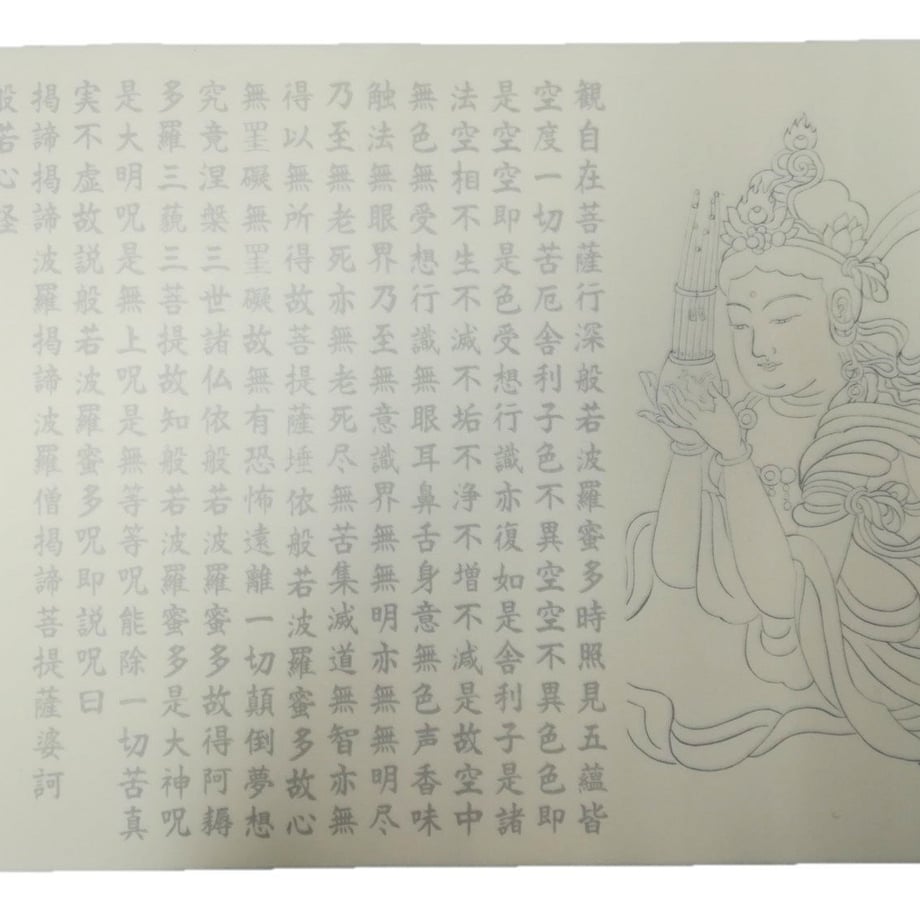 観自在菩薩行深般若波羅蜜多時照見五蘊皆
空度一切苦厄舎利子色不異空空不異色色即
是空空即是色受想行識亦復如是舎利子是諸
法空相不生不滅不垢不浄不増不減是故空中
無色無受想行識無眼耳鼻舌身意無色声香味
触法無眼界乃至無意識界無無明亦無無明尽
乃至無老死亦無老死尽無苦集滅道無智亦無
得以無所得故菩提薩埵依般若波羅蜜多故心
無罣礙無罣礙故無有恐怖遠離一切顛倒夢想
究竟涅槃三世諸仏依般若波羅蜜多故得阿耨
多羅三藐三菩提故知般若波羅蜜多是大神呪
是大明呪是無上呪是無等等呪能除一切苦真
実不虚故説般若波羅蜜多呪即説呪曰
掲諦掲諦波羅掲諦波羅僧掲諦菩提薩婆訶
般若心経